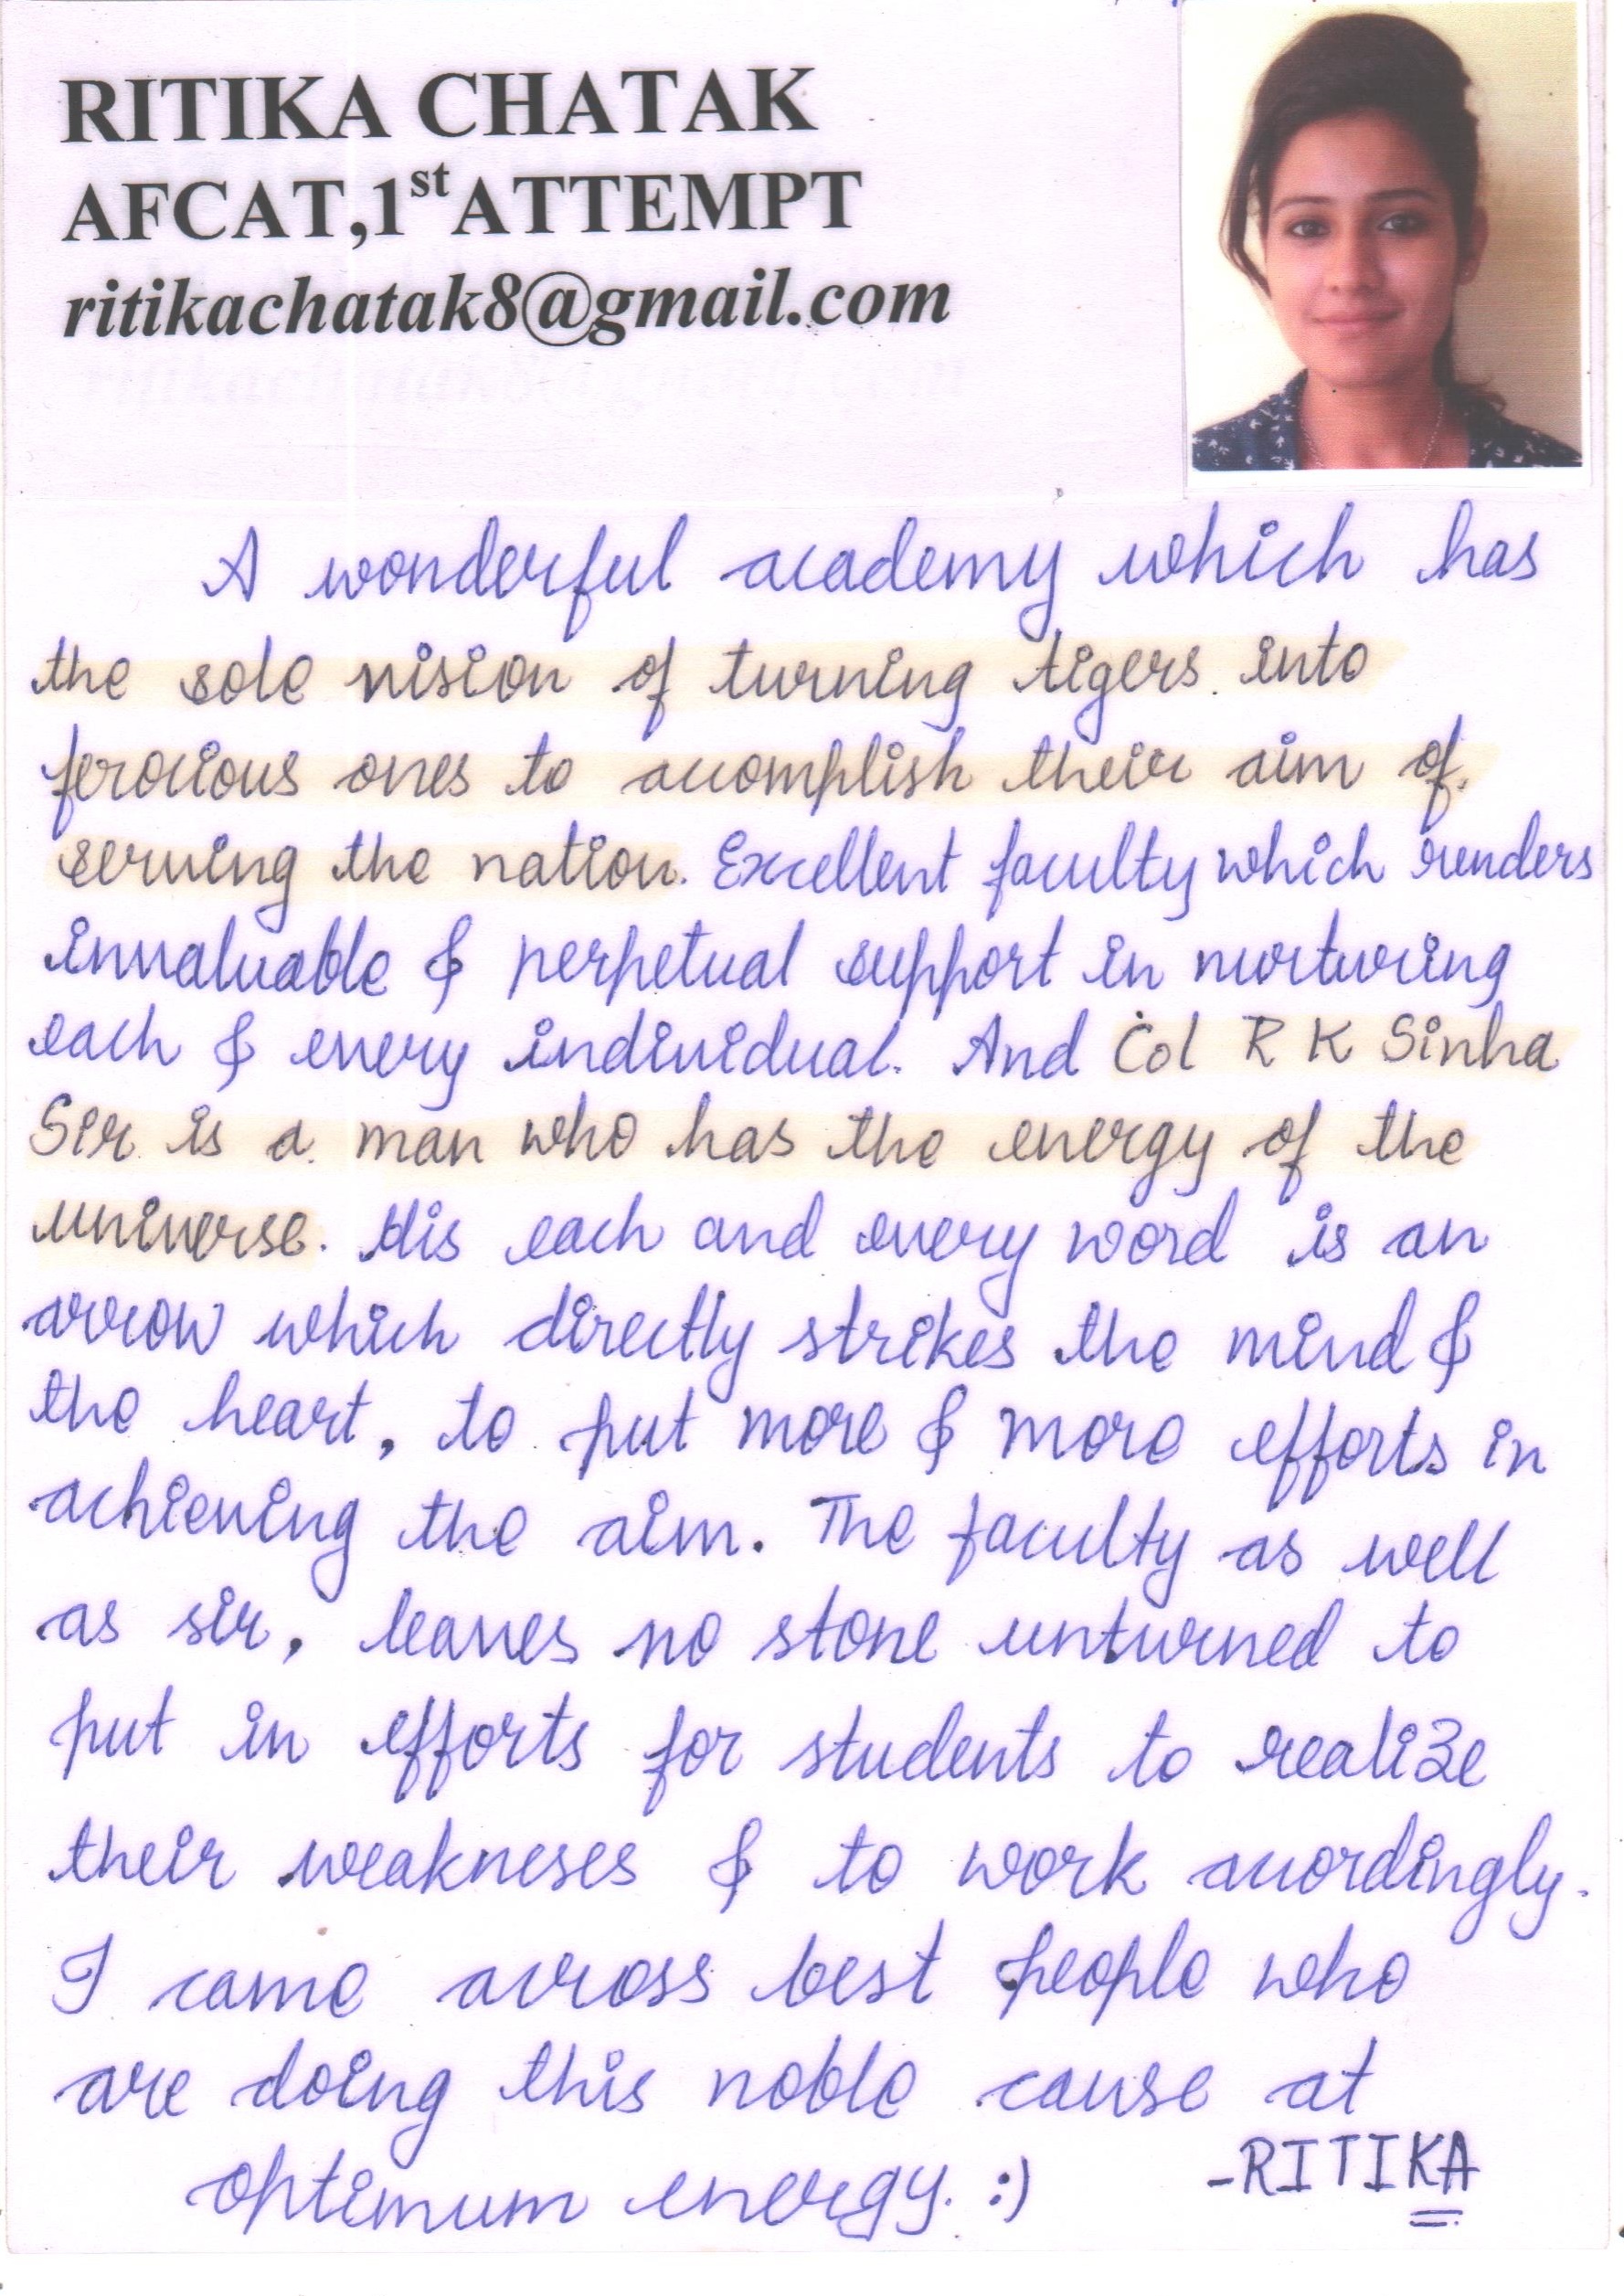 RITIKA CHATAK
AFCAT,1st ATTEMPT
ritikachatak8@gmail.com
A wonderful academy which has
the sole vision of turning tigers into
ferocious ones to accomplish their aim of
serving the nation. Excellent faculty which renders
invaluable & perpetual support in nurturing
each & every individual. And Col R K Sinha
Sir is a man who has the energy of the
universe. His each and every word is an
arrow which directly strikes the mind &
the heart, to put more & more efforts in
achieving the aim. The faculty as well
as sir, leaves no stone unturned to
put in efforts for students to realize
their weakneses & to work accordingly.
I came across best people who
are doing this noble cause at
optimum energy. :)
-RITIKA